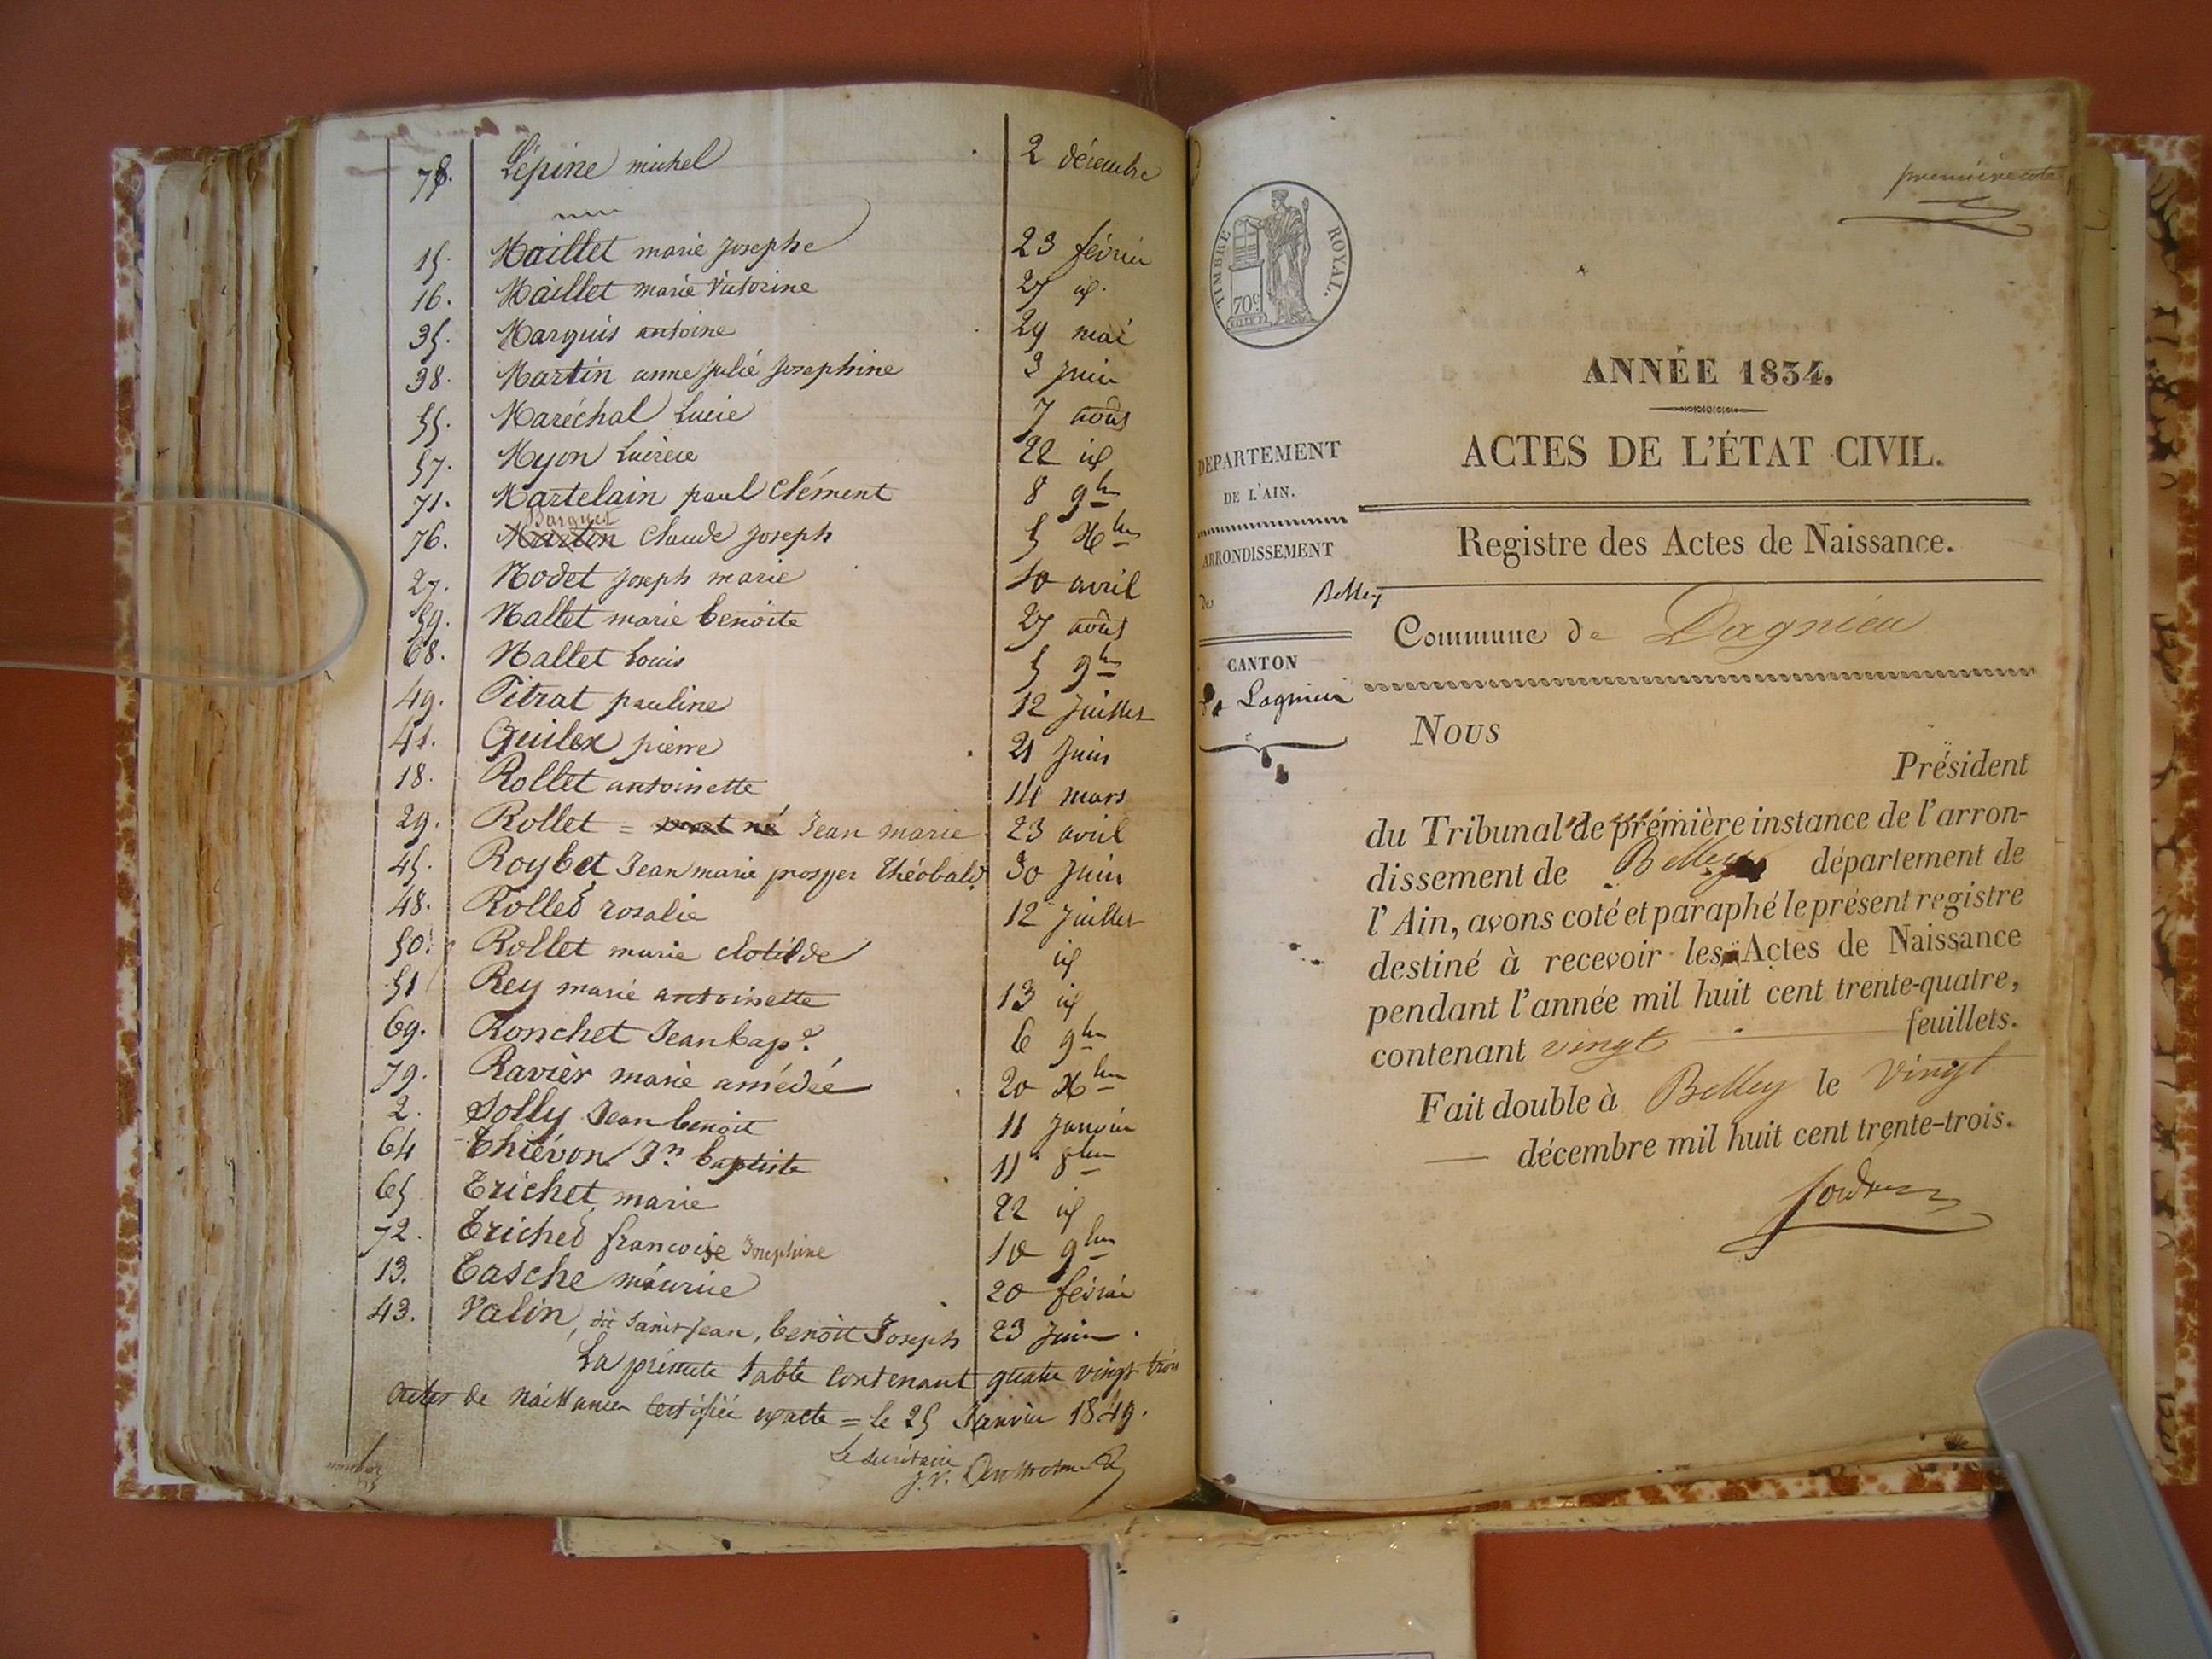 78. Lépine michel 2 décembre
15. Maillet marie Josephe 23 février
16. Maillet marie Victorine 27 id.
35. Marquis antoine 29 mai
38. Martin anne Julie Josephine 3 Juin
55. Maréchal Lucie 7 août
57. Myon Lucrèce 22 id
71. Martelain paul Clément 8 9bre
Barquet
76. Martin Claude Joseph 5 Xbre
27. Nodet Joseph marie 10 avril
59. Nallet marie benoite 27 août
68. Nallet Louis 5 9bre
49. Pitrat pauline 12 Juillet
41. Quilex pierre 21 Juin
18. Rollet antoinette 14 mars
29. Rollet = mort né Jean marie 23 avril
45. Roybet Jean marie prosper Théobald 30 Juin
48. Rollet rosalie 12 Juillet
50. Rollet marie clotilde id
51 Rey marie antoinette 13 id
69. Ronchet Jean bapte 6 9bre
79. Ravier marie amédée 20 Xbre
2. Solly Jean benoit 11 Janvier
64 Thiévon Jn baptiste 11 8bre
65 Trichet marie 22 id
72. Trichet francoise Josephine 10 9bre
13. Tasche maurice 20 février
43. Valin, dit Saint Jean, benoit Joseph 23 Juin.
La présente table contenant quatre vingt trois
actes de naissances certifiée exacte = le 25 Janvier 1849.
Le secrétaire
J. V.
première cote
TIMBRE ROYAL.
70c
ANNÉE 1834.
ACTES DE L'ÉTAT CIVIL.
DEPARTEMENT
DE L'AIN.
ARRONDISSEMENT
de Belley
CANTON
de Lagnieu
Registre des Actes de Naissance.
Commune de Lagnieu
Nous
Président
du Tribunal de première instance de l'arron-
dissement de Belley département de
l'Ain, avons coté et paraphé le présent registre
destiné à recevoir les Actes de Naissance
pendant l'année mil huit cent trente-quatre,
contenant vingt feuillets.
Fait double à Belley le vingt
décembre mil huit cent trente-trois.